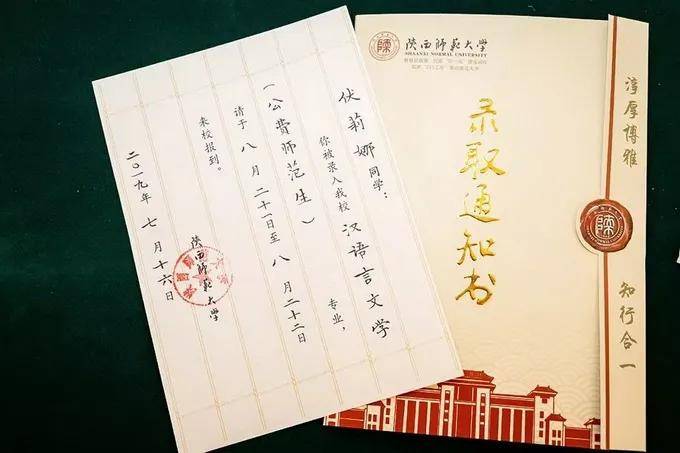 伏莉娜同学：
你被录入我校 汉语言文学 专业，
（公费师范生）
请于 八 月 二十一日至 八 月 二十二日
来校报到。
陕西师范大学
二〇一九年 七 月 十六日
陝西師範大學
SHAANXI NORMAL UNIVERSITY
录取通知书
淳厚博雅
知行合一